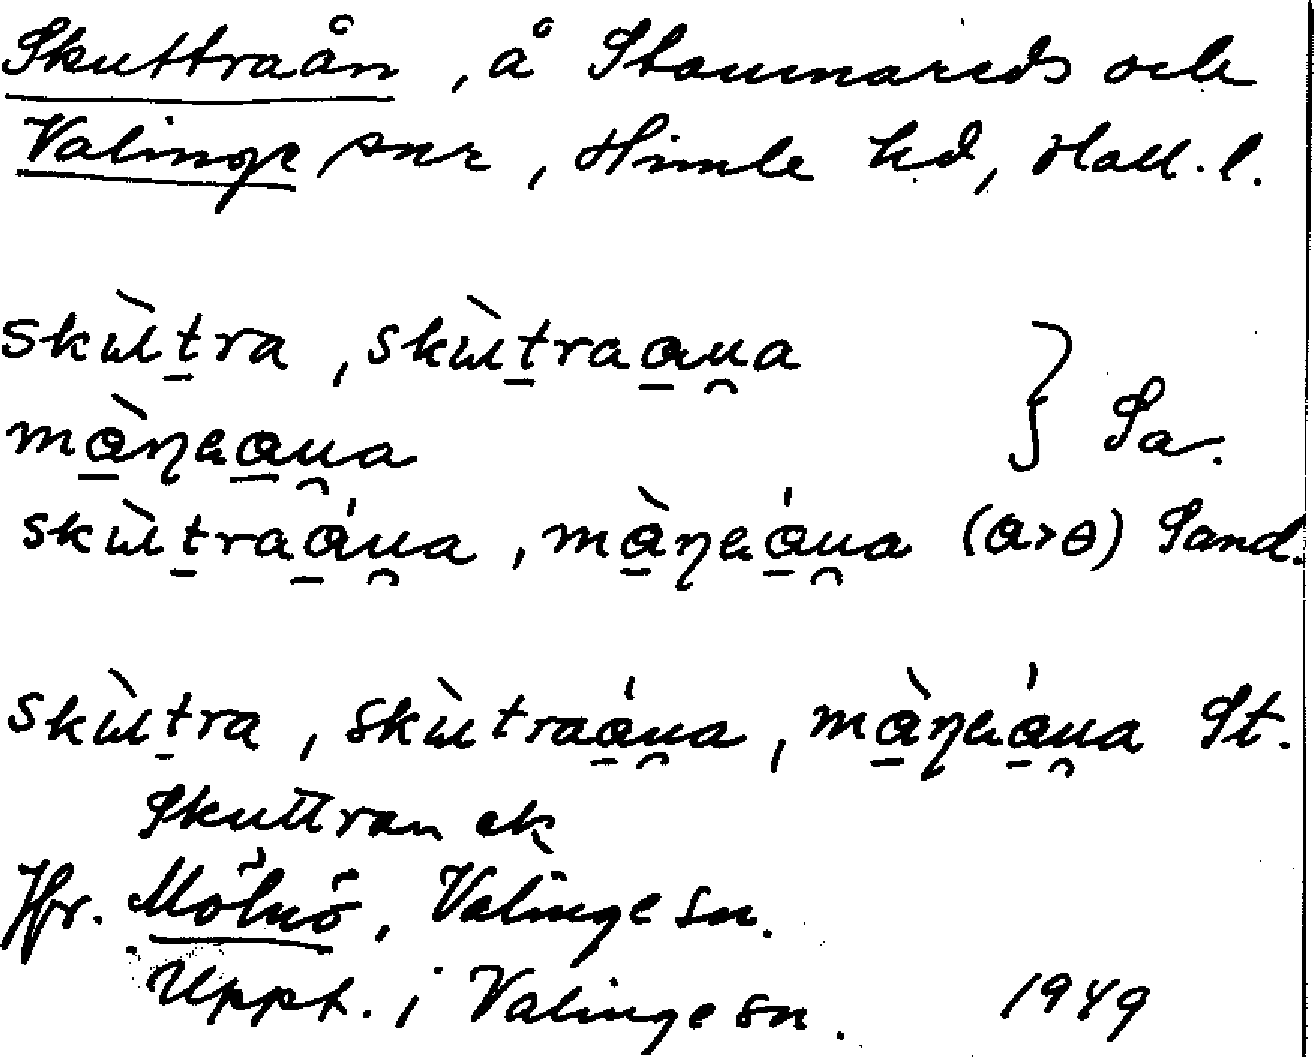 Skuttraån, å Stamnareds och
Valinge snr, Himle hd, Hall. l.
skùtra, skùtraaua
màŋaaua } Sa.
skùtraáua, màŋaáua (a>ɵ) Sand.
skùtra, skùtraáua, màŋaáua St.
Skuttran ek
Jfr. Mölnö, Valinge sn.
Uppt. i Valinge sn. 1949